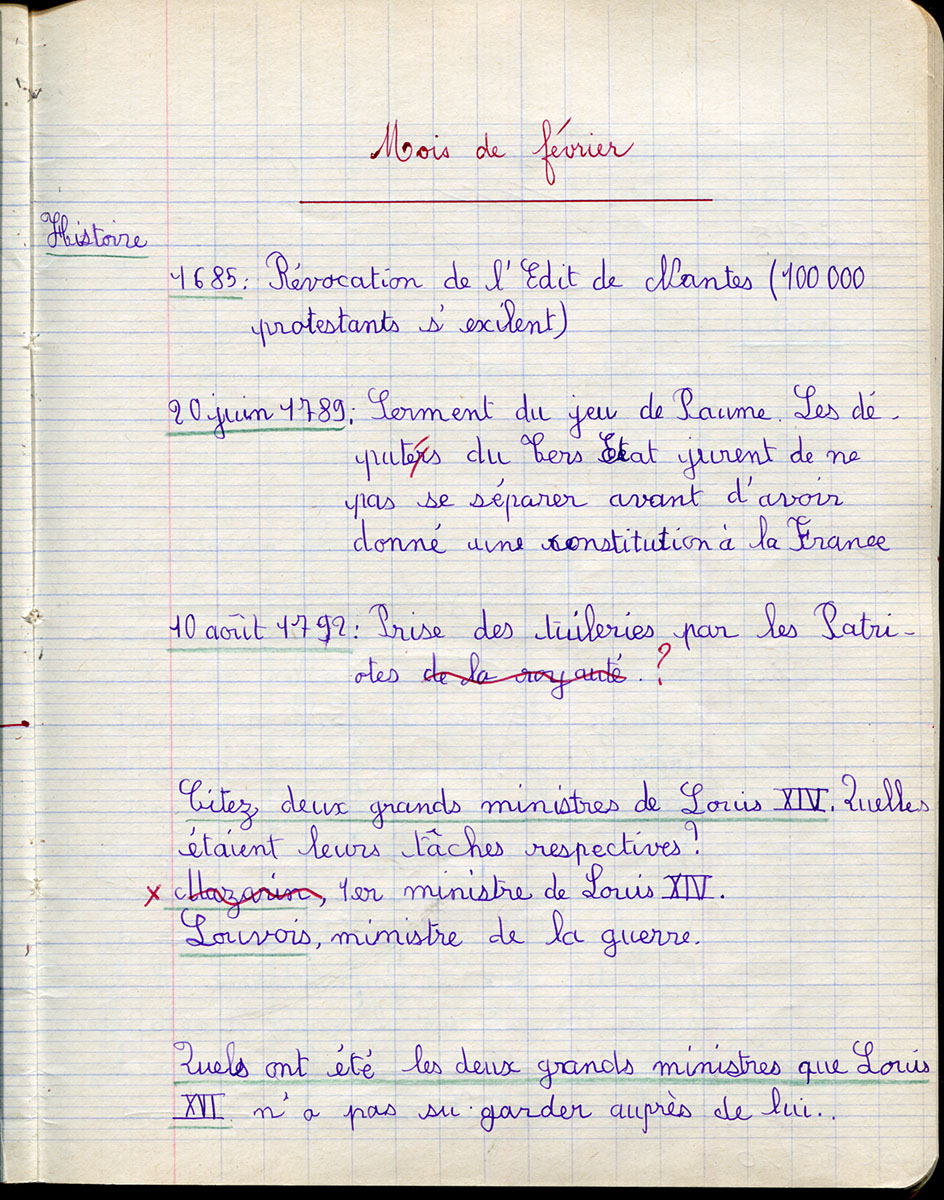 Mois de février
Histoire
1685: Révocation de l'Edit de Nantes (100 000
protestants s'exilent)
20 juin 1789: Serment du jeu de Paume. Les dé-
putés du Tiers Etat jurent de ne
pas se séparer avant d'avoir
donné une constitution à la France
10 août 1792: Prise des tuileries par les Patri-
otes de la royauté. ?
Citez deux grands ministres de Louis XIV. Quelles
étaient leurs tâches respectives?
x Mazarin, 1er ministre de Louis XIV.
Louvois, ministre de la guerre.
Quels ont été les deux grands ministres que Louis
XVI n'a pas su garder auprès de lui..